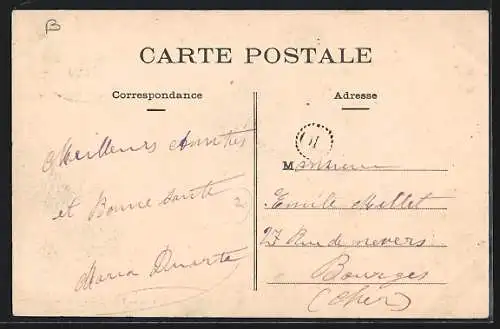 B
CARTE POSTALE
Correspondance
Adresse
Meilleurs Amitiés
et Bonne Santé
Maria Duarte
2
H
Monsieur
Emile Millet
27 Rue de nevers
Bourges
(Cher)